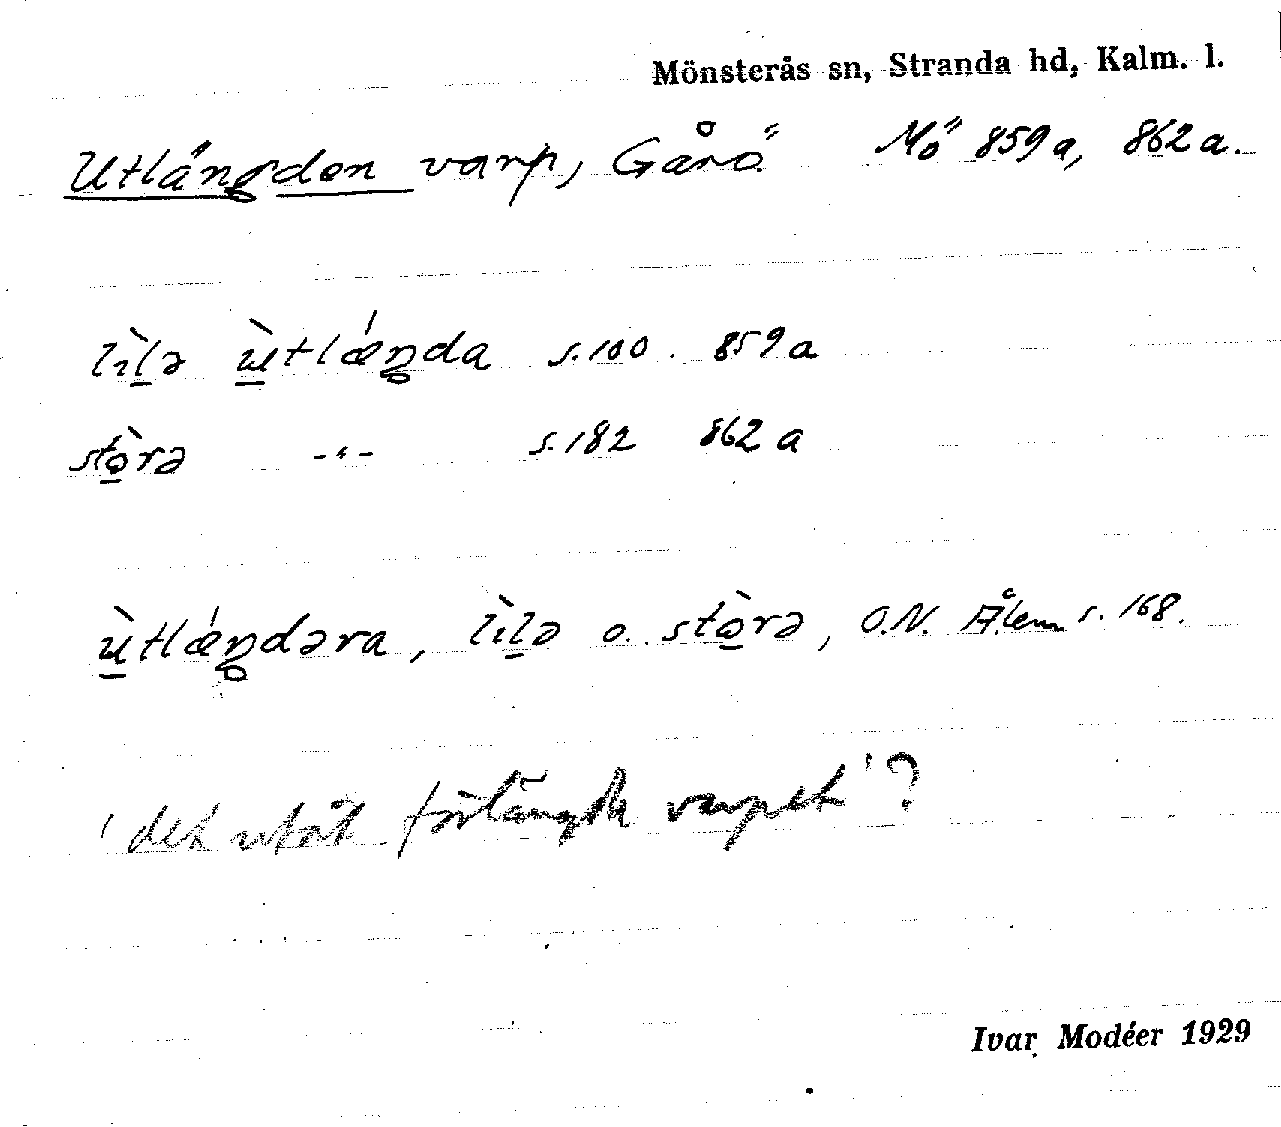 Mönsterås sn, Stranda hd, Kalm. l.
Utlängden varp, Gårö Mö 859a, 862a.
lìlə ùtlǽŋda s.100. 859a
stòrə -"- s.182 862a
ùtlǽŋdəra, lìlə o. stòrə, O.N. Ålem s. 168.
'det utåt förlängda varpet'?
Ivar Modéer 1929